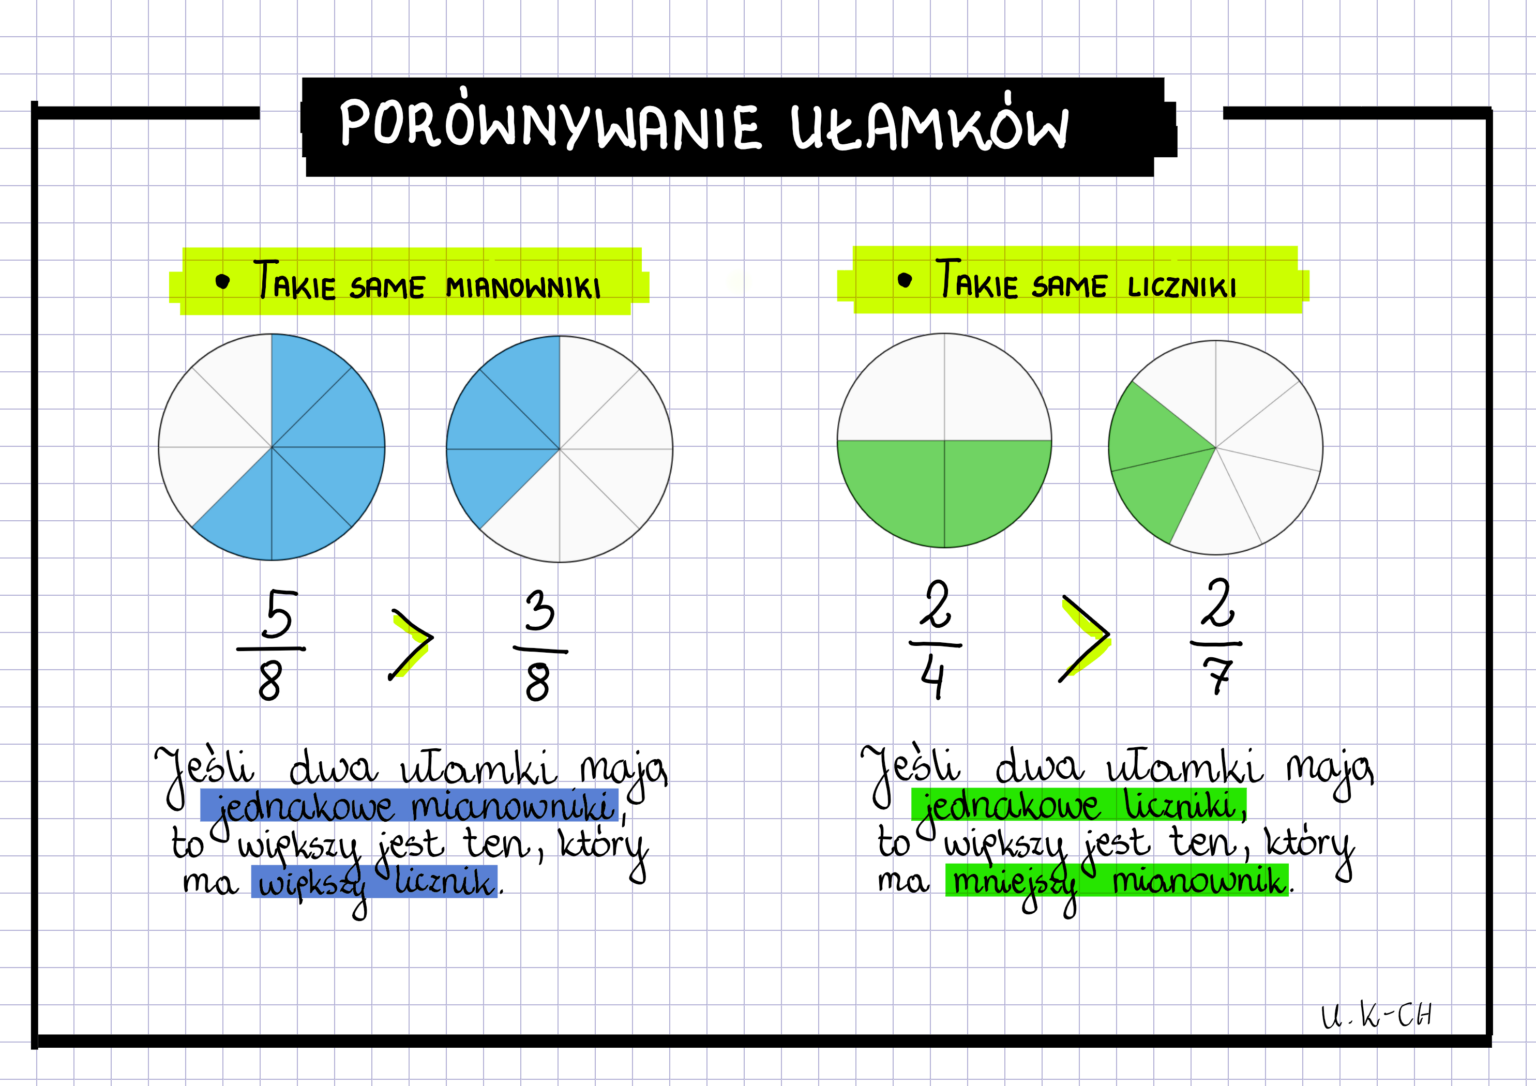 PORÓWNYWANIE UŁAMKÓW
• TAKIE SAME MIANOWNIKI
5/8 > 3/8
Jeśli dwa ułamki mają
jednakowe mianowniki,
to większy jest ten, który
ma większy licznik.
• TAKIE SAME LICZNIKI
2/4 > 2/7
Jeśli dwa ułamki mają
jednakowe liczniki,
to większy jest ten, który
ma mniejszy mianownik.
U.K-CH